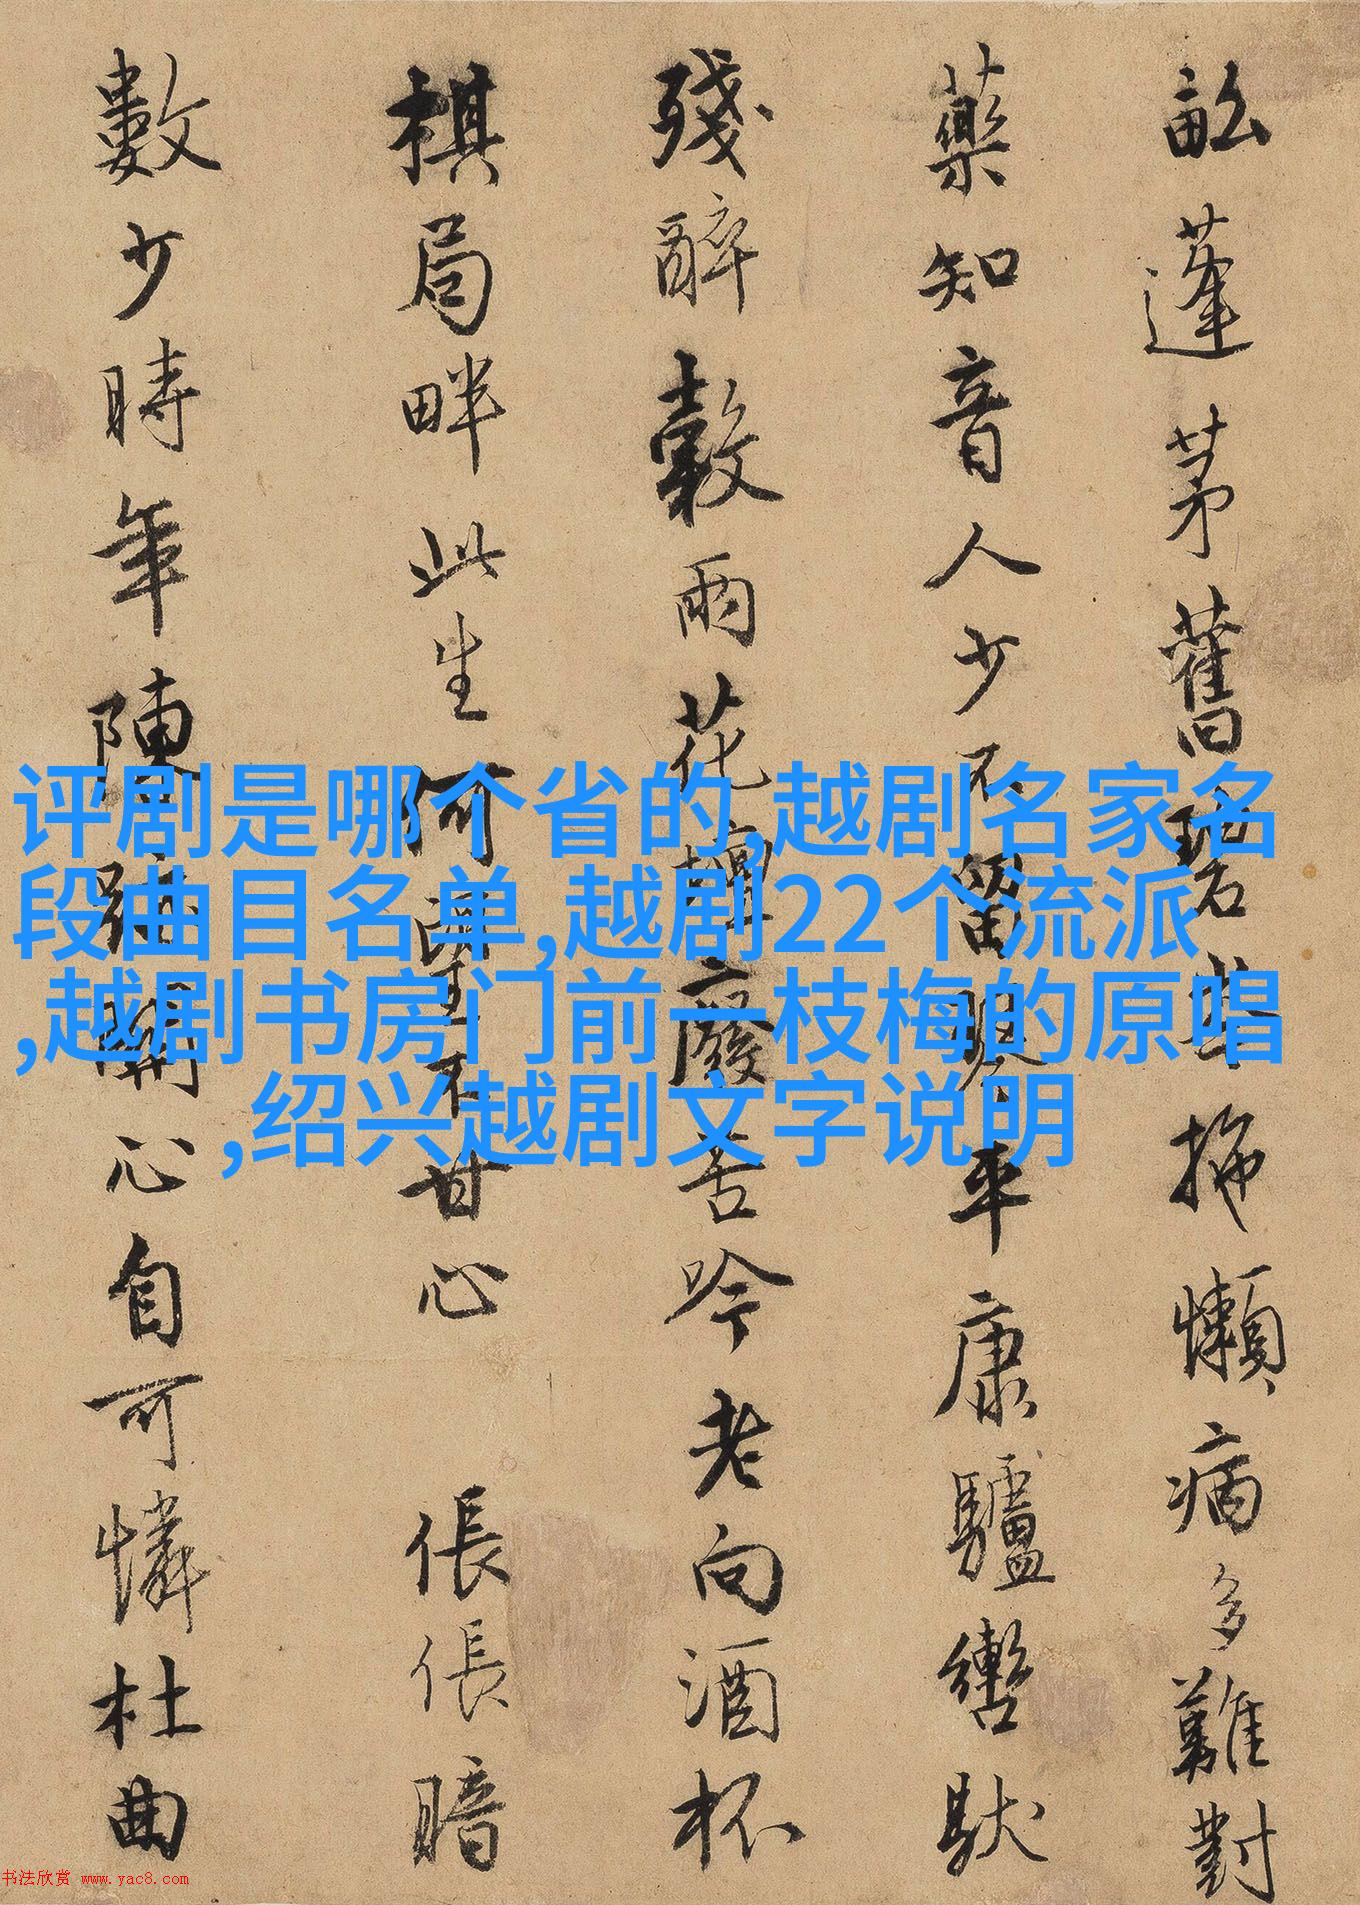 畝蓬茅舊拖懶病多難對
藥知音人少不留平康驢轡馱
殘醉穀雨花廢苦吟老向酒杯
棋局畔此生不甘心 倀倀暗
數少時年陳跡關心自可憐杜曲
评剧是哪个省的,越剧名家名
段曲目名单,越剧22个流派
,越剧书房门前一枝梅的原唱
,绍兴越剧文字说明
书法欣赏 www.yac8.com